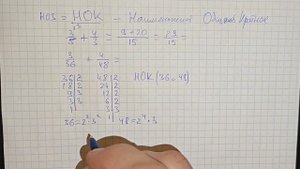 НОЗ = НОК – Наименьшее Общее Кратное
3/5 + 4/3 = (9+20)/15 = 29/15 =
3/36 + 4/48 =
36|2 48|2 НОК(36 и 48)
18|2 24|2
9|3 12|2
3|3 6|2
1 3|3
36=2²·3² 1 48=2⁴·3